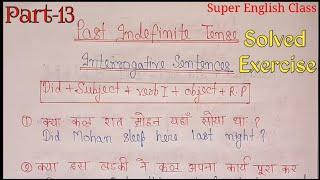 Part-13
Super English Class
Past Indefinite Tense
Solved
Interrogative Sentences
Exercise
Did + Subject + verb I + object + R.P
① क्या कल रात मोहन यहाँ सोया था ?
Did Mohan sleep here last night ?
② क्या इस लडकी ने कल अपना कार्य पूरा कर